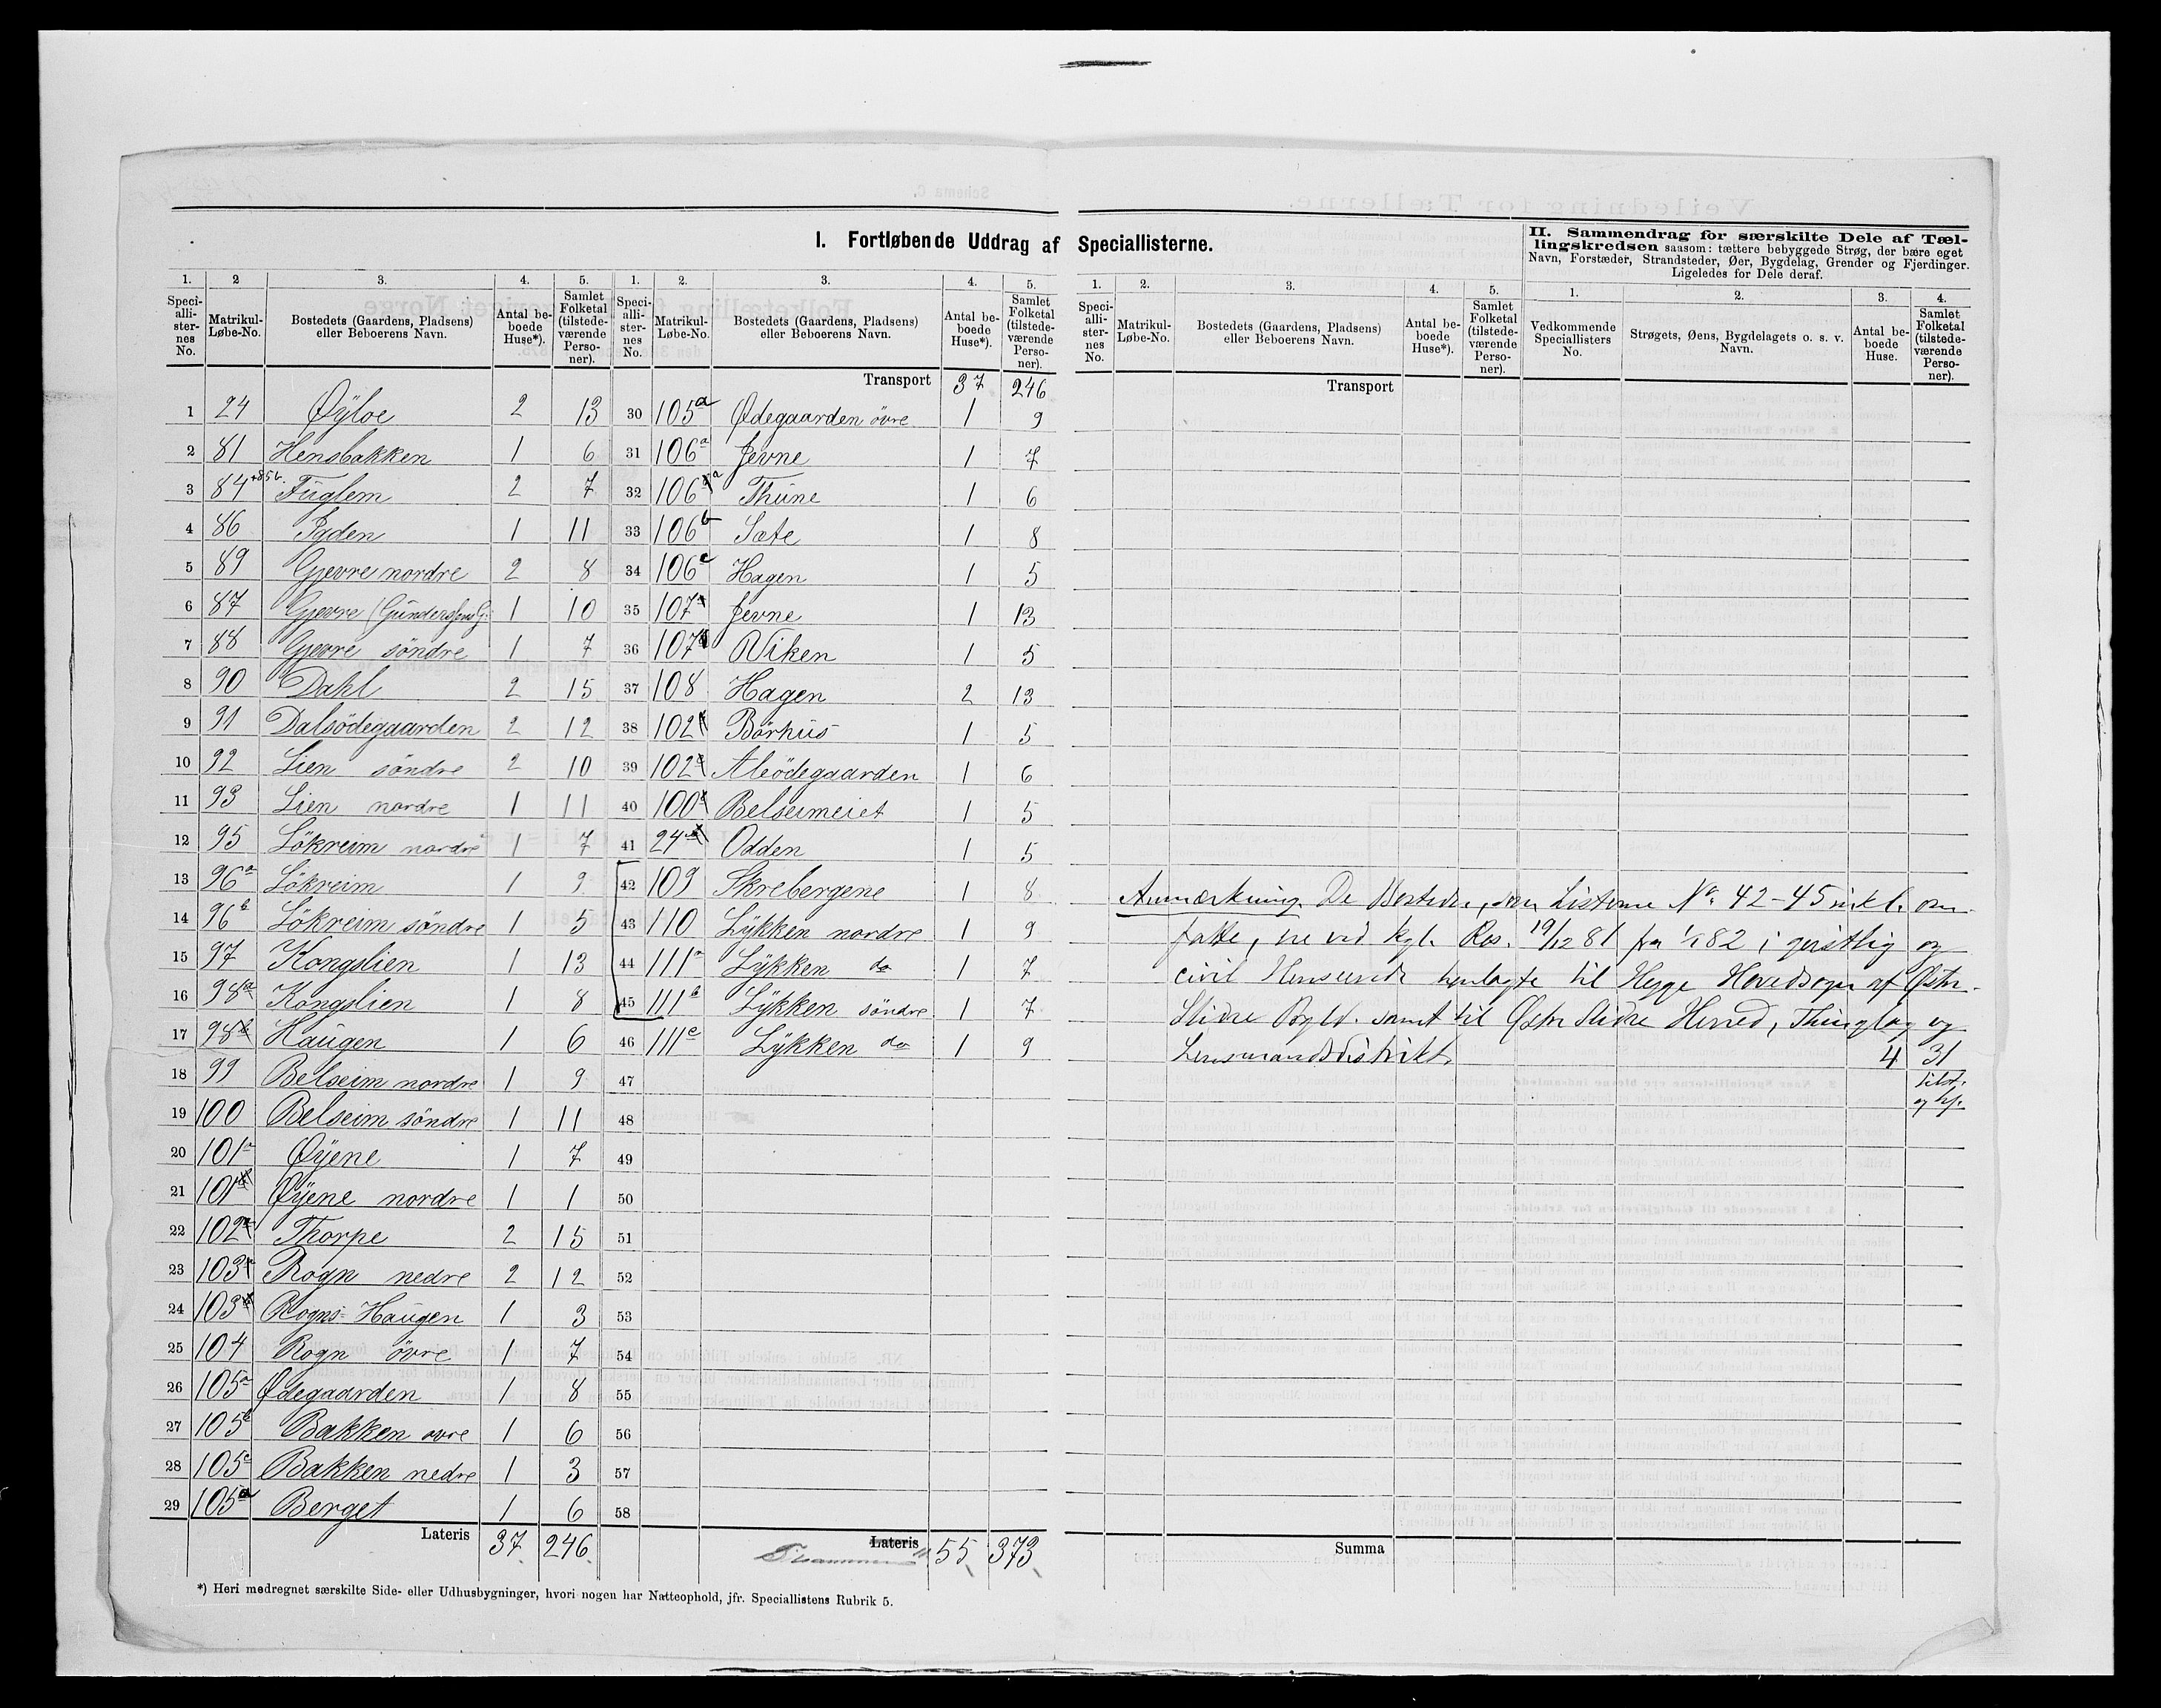 I. Fortløbende Uddrag af Speciallisterne.
II. Sammendrag for særskilte Dele af Tællingskredsen saasom: tættere bebyggede Strøg, der bære eget Navn, Forstæder, Strandsteder, Øer, Bygdelag, Grender og Fjerdinger. Ligeledes for Dele deraf.
1. 2 3. 4. 5. 1. 2. 3. 4. 5. 1. 2. 3. 4. 5. 1. 2. 3. 4.
Speciallisternes No. Matrikul-Løbe-No. Bostedets (Gaardens, Pladsens) eller Beboerens Navn. Antal beboede Huse*). Samlet Folketal (tilstedeværende Personer).
Speciallisternes No. Matrikul-Løbe-No. Bostedets (Gaardens, Pladsens) eller Beboerens Navn. Antal beboede Huse*). Samlet Folketal (tilstedeværende Personer).
Speciallisternes No. Matrikul-Løbe-No. Bostedets (Gaardens, Pladsens) eller Beboerens Navn. Antal beboede Huse*). Samlet Folketal (tilstedeværende Personer).
Vedkommende Speciallisters No. Strøgets, Øens, Bygdelagets o. s. v. Navn. Antal beboede Huse. Samlet Folketal (tilstedeværende Personer).
1 24 Øÿloe 2 13
2 81 Hensbakken 1 6
3 84 +85b. Füglem 2 7
4 86 Ygden 1 11
5 89 Gjevre nordre 2 8
6 87 Gjevre 1 10
7 88 Gjevre söndre 1 7
8 90 Dahl 2 15
9 91 Dalsödegaarden 2 12
10 92 Lien söndre 2 10
11 93 Lien nordre 1 11
12 95 Lökreim nordre 1 7
13 96a Lökreim 1 9
14 96b Lökreim söndre 1 5
15 97 Kongslien 1 13
16 98a Kongslien 1 8
17 98b Haügen 1 6
18 99 Belseim nordre 1 9
19 100 Belseim söndre 1 11
20 101a Øÿene 1 7
21 101 Øÿene nordre 1 1
22 102a Thorpe 2 15
23 103 Rogn nedre 2 12
24 103 Rogns-Haügen 1 3
25 104 Rogn övre 1 7
26 105a Ødegaarden 1 8
27 105b Bakken øvre 1 6
28 105c Bakken nedre 1 3
29 105a Berget 1 6
Lateris 37 246
Transport 37 246
30 105a Ødegaarden övre 1 9
31 106a Jevne 1 7
32 106a Thüne 1 6
33 106b Sæte 1 8
34 106c Hagen 1 5
35 107 Jevne 1 13
36 107 Viken 1 5
37 108 Hagen 2 13
38 102 Börhüs 1 5
39 102 Aleödegaarden 1 6
40 100 Belseimeiet 1 5
41 24 Odden 1 5
42 109 Skrebergene 1 8
43 110 Lÿkken nordre 1 9
44 111a Lÿkken do 1 7
45 111b Lÿkken söndre 1 7
46 111c Lÿkken do 1 9
47
48
49
50
51
52
53
54
55
56
57
58
Lateris 55 373
Transport
Anmærkning. De Bosteder, som Listerne No. 42-45 inkl. om-
fatte, ere ved kgl. Res. 19/12 81 fra 1/1 82 i geistlig og
civil Henseende henlagte til Hegge Hovedsogn af Østre
Slidre Prgld. samt til Østre Slidre Herred, Thinglag og
Lensmandsdistrikt. 4 31
tilst.
Summa
*) Heri medregnet særskilte Side- eller Udhusbygninger, hvori nogen har Natteophold, jfr. Speciallistens Rubrik 5.